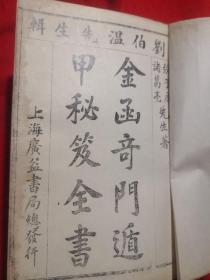 劉伯溫先生輯
諸葛亮
先生著
金函奇門遁
甲秘笈全書
上海廣益書局總發行